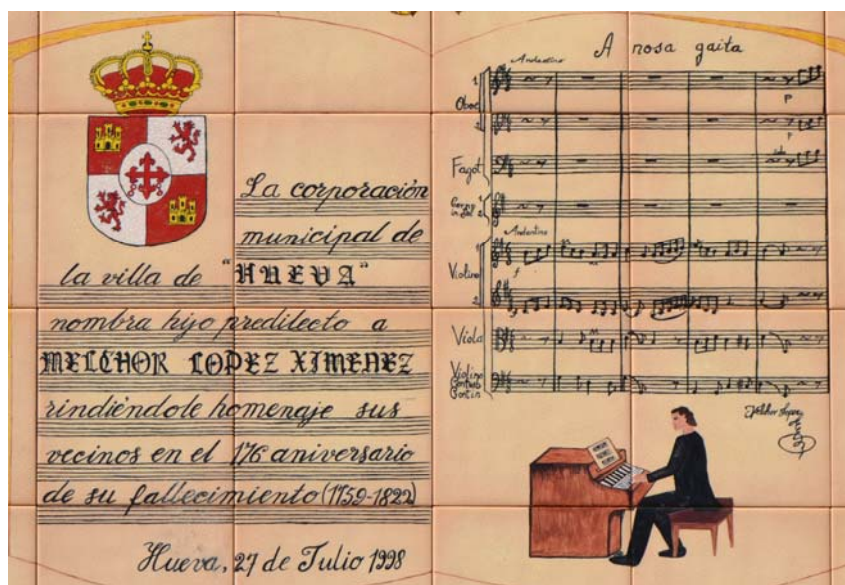 La corporación
municipal de
la villa de "HUEVA"
nombra hijo predilecto a
MELCHOR LOPEZ XIMENEZ
rindiéndole homenaje sus
vecinos en el 176 aniversario
de su fallecimiento (1759-1822)
Hueva, 27 de Julio 1998
A nosa gaita
Andantino
1
Oboe
2
P
P
Fagot
1
2
Andantino
1
Violino
2
f
Viola
Violino
Melchor Lopez